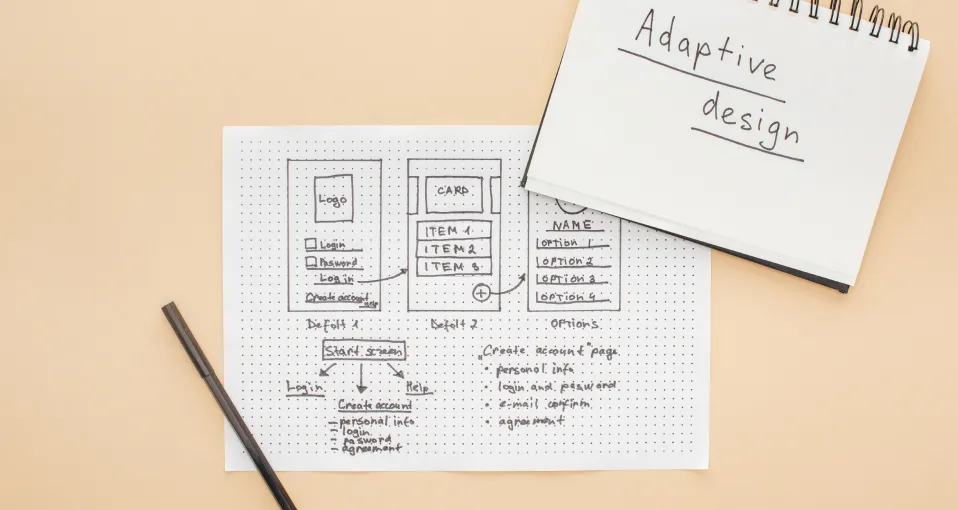 Adaptive
design
Logo
Login
Pasword
Log in
Create account
Help
Defolt 1
CARD
ITEM 1
ITEM 2
ITEM 3
+
Defolt 2
NAME
OPTION 1
OPTION 2
OPTION 3
OPTION 4
OPTIONS
Start screen
Login
Create account
Help
– personal info
– login
– pasword
– agreement
„Create account" page
• personal info
• login and pasword
• e-mail confirm
• agreement